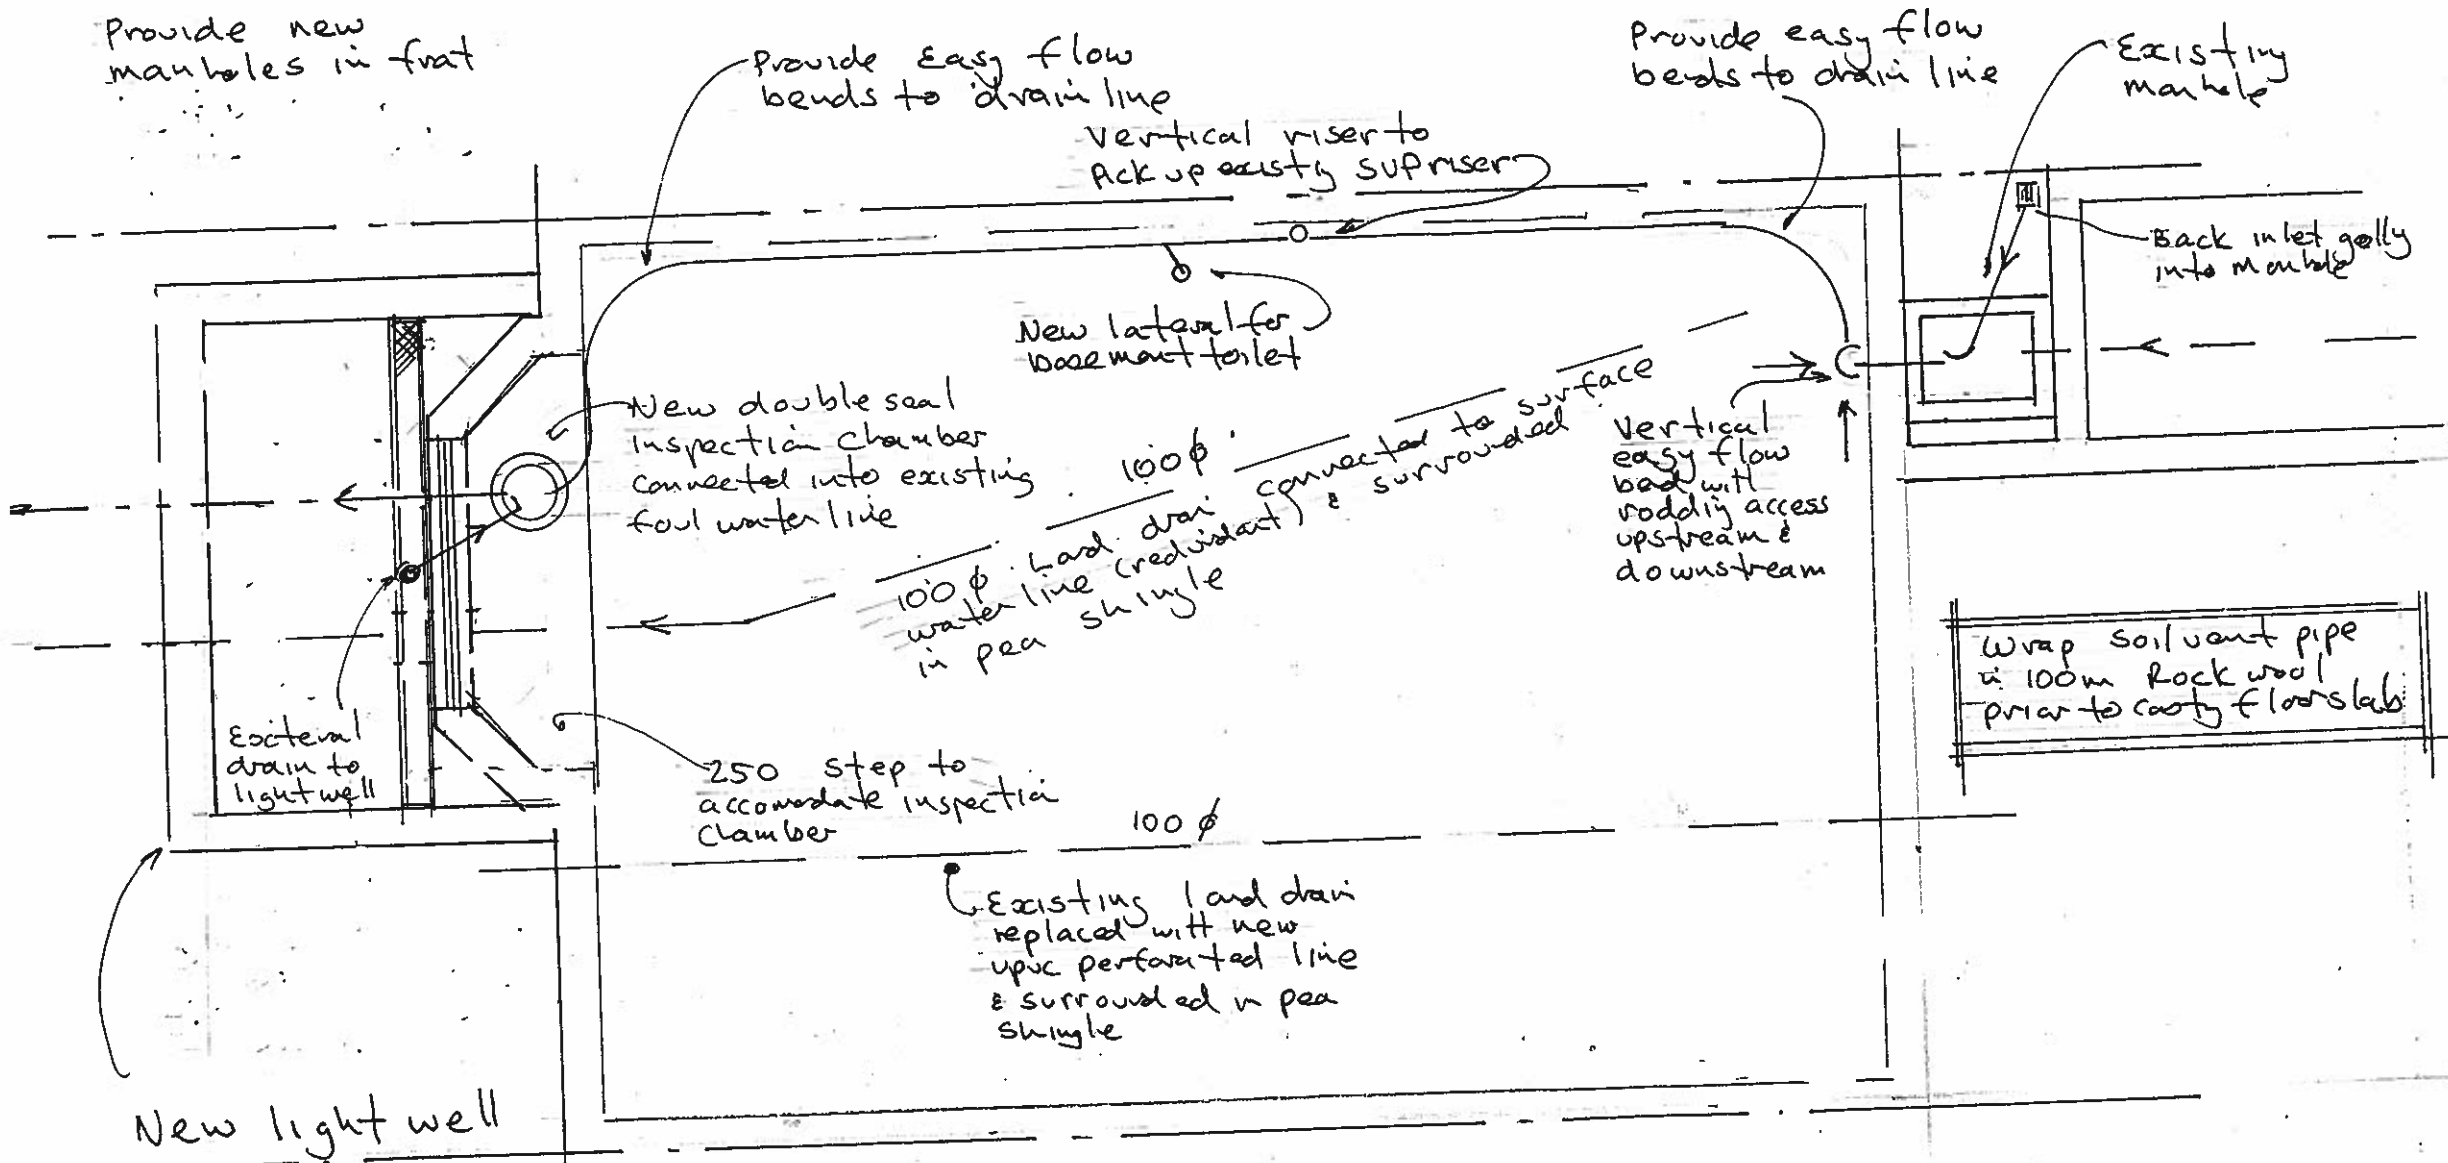 Provide new
manholes in frat
Provide Easy flow
bends to drain line
Vertical riser to
Pick up existg SVP riser
Provide easy flow
bends to drain line
Existing
manhole
Back inlet golly
into manhole
New lateral for
basement toilet
New double seal
inspection chamber
connected into existing
foul water line
100 ϕ
100 ϕ. Land. drain connected to surface
water line (redundant) & surrounded
in pea shingle
Vertical
easy flow
bend with
roddig access
upstream &
downstream
Wrap soil vent pipe
in 100m Rock wool
prior to castg floor slab
External
drain to
lightwell
250 step to
accomodate inspection
chamber
100 ϕ
Existing land drain
replaced with new
upvc perforated line
& surrounded in pea
shingle
New light well